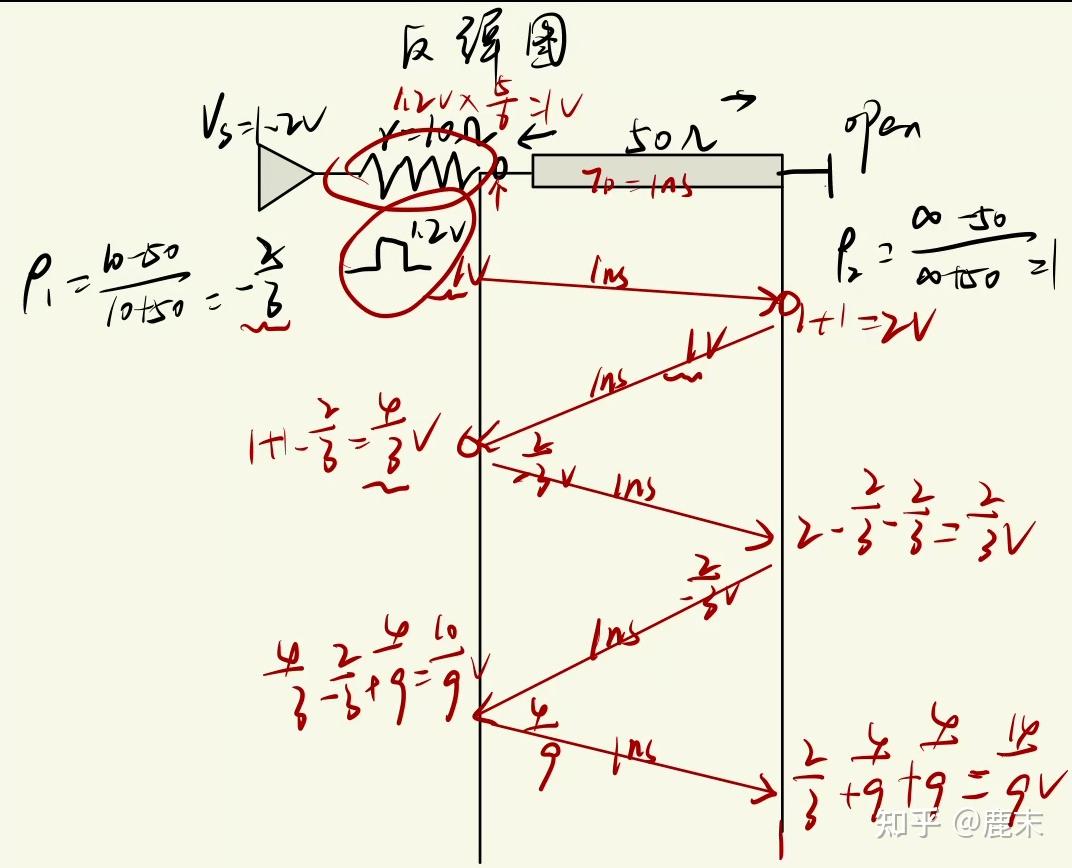 反弹图
1.2V × 5/6 = 1V
Vs=1.2V
r=10Ω
50Ω
open
TD = 1ns
1.2V
ρ1 = (10-50)/(10+50) = -2/3
ρ2 = (∞-50)/(∞+50) = 1
1V
1ns
1+1=2V
1V
1ns
1+1-2/3=4/3V
-2/3V
1ns
2-2/3-2/3=2/3V
-2/3V
1ns
4/3-2/3+4/9=10/9V
4/9
1ns
2/3+4/9+4/9=14/9V
知乎 @鹿末